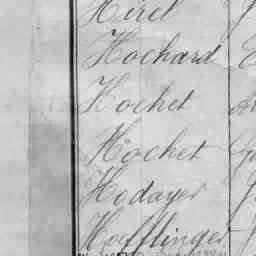 Hirel
Hochard
Hochet
Hochet
Hodayer
Hoefflinger